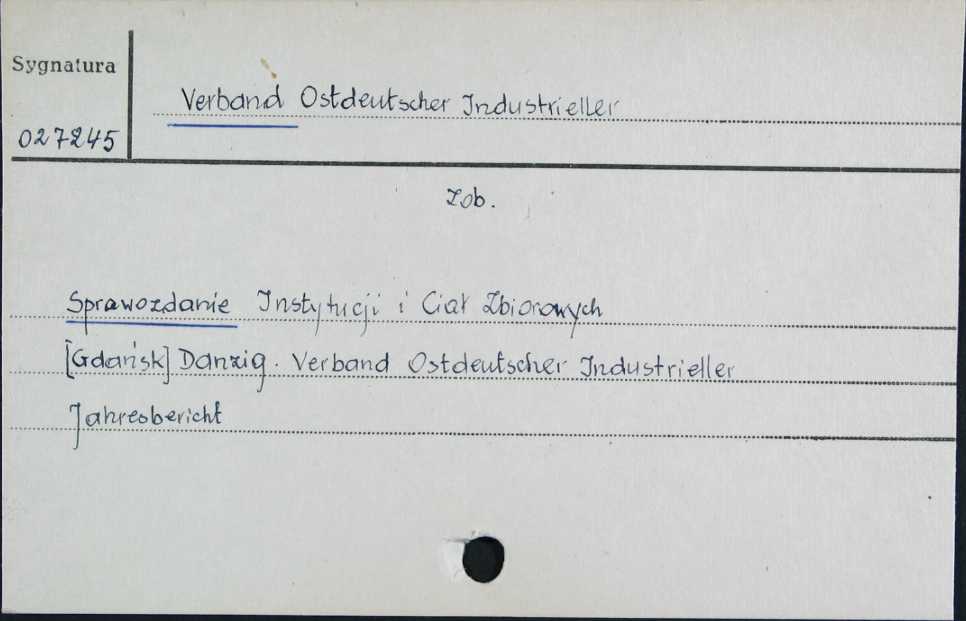 Sygnatura
Verband Ostdeutscher Industrieller
027245
Zob.
Sprawozdanie Instytucji i Ciał Zbiorowych
[Gdańsk] Danzig. Verband Ostdeutscher Industrieller
Jahresbericht